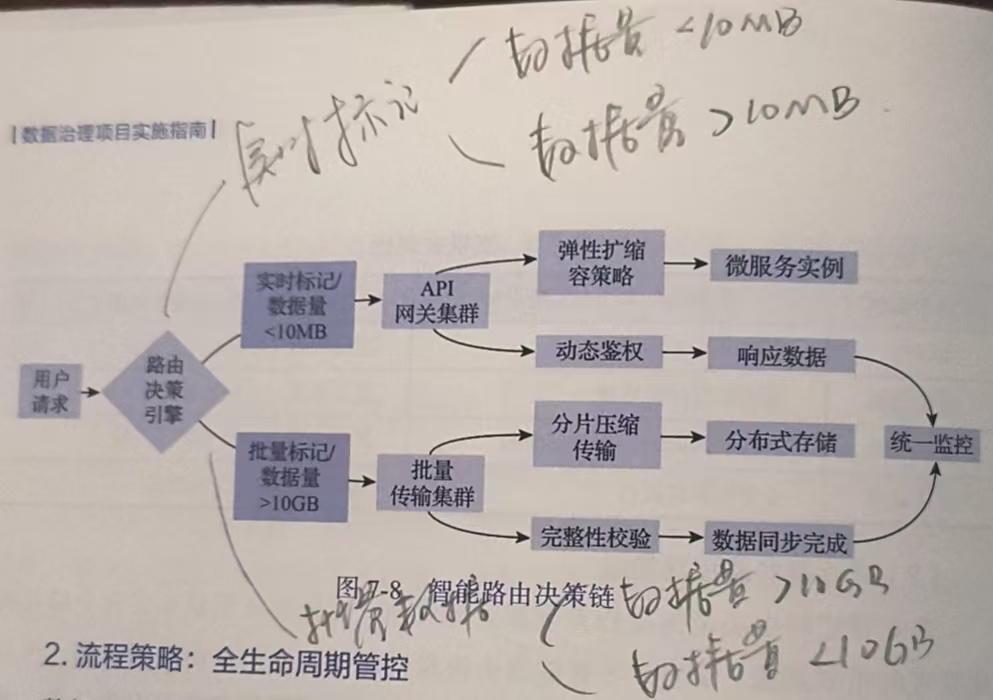 数据量 <10MB
实时标记
数据量 >10MB
|数据治理项目实施指南|
用户
请求
路由
决策
引擎
实时标记/
数据量
<10MB
API
网关集群
弹性扩缩
容策略
微服务实例
动态鉴权
响应数据
批量标记/
数据量
>10GB
批量
传输集群
分片压缩
传输
分布式存储
完整性校验
数据同步完成
统一监控
图 7-8 智能路由决策链
数据量 >10GB
批量数据
数据量 <10GB
2. 流程策略：全生命周期管控